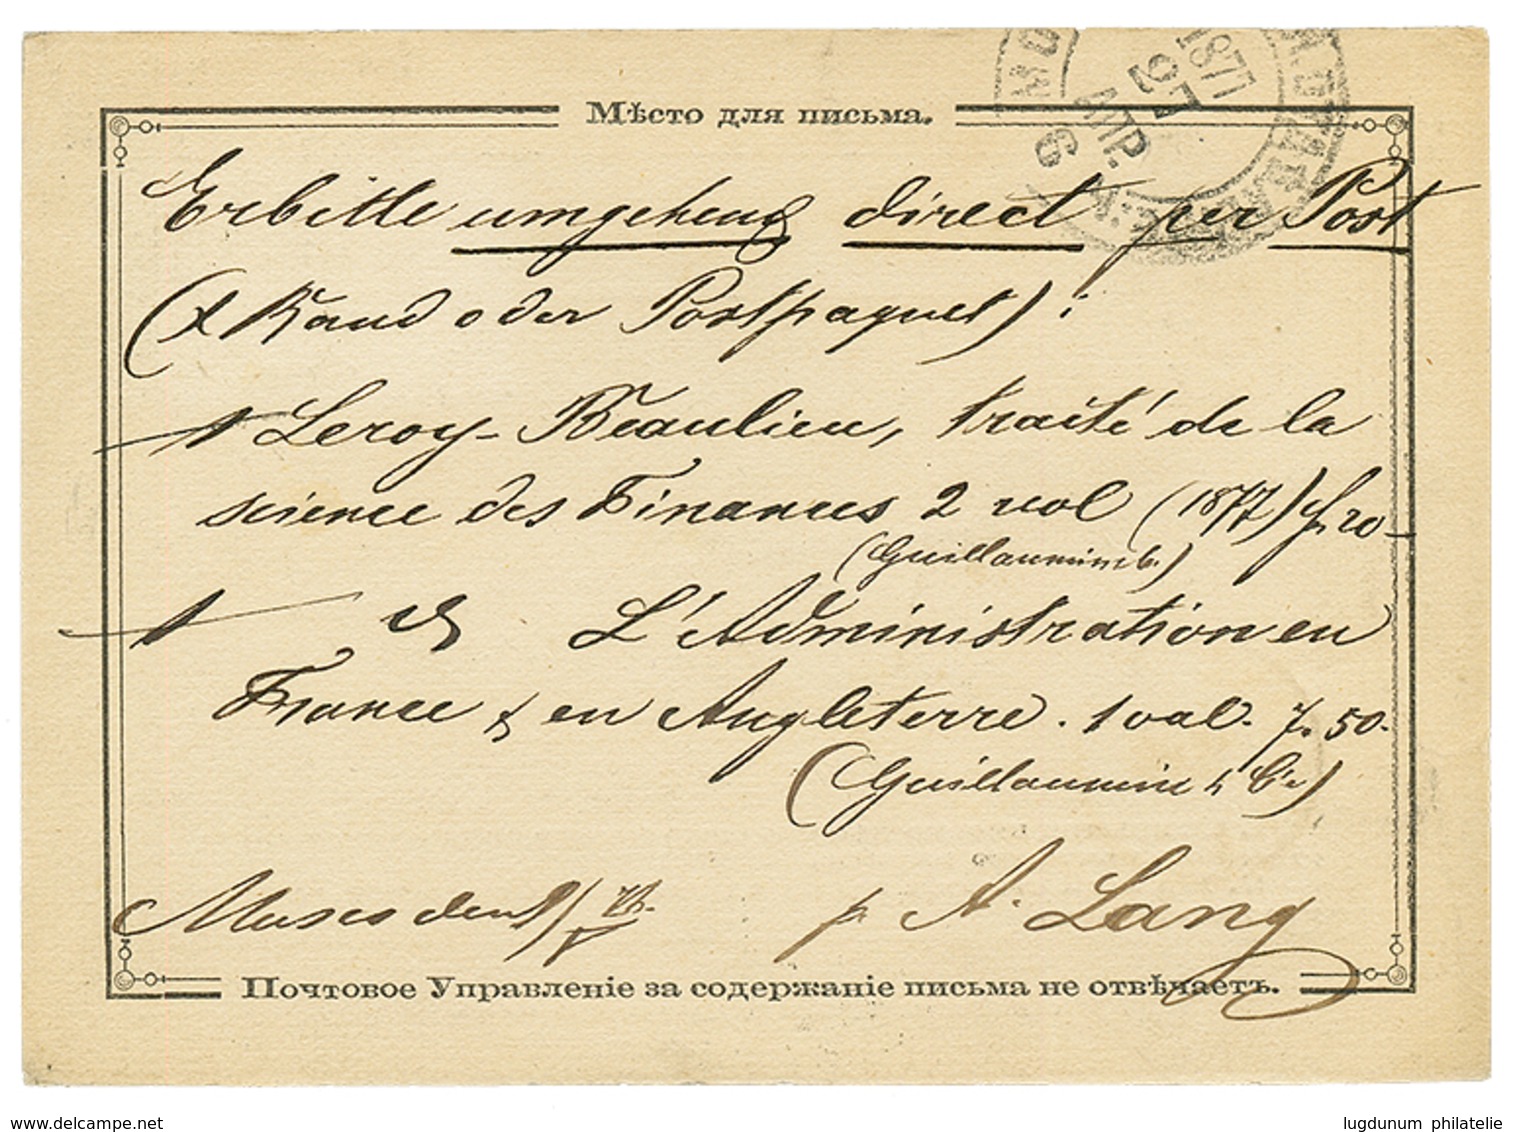 Мѣсто для письма.
1877
27
АПР.
6
Erbitte umgehend direct per Post
(X Band oder Postpaquet):
1 Leroy-Beaulieu, traité de la
science des Finances 2 vol (1877) fr 20-
(Guillaumin &
1 L'Administration en
France & en Angleterre. 1 vol. 7.50.
(Guillaumin & Cie)
den 9/
p A. Lang
Почтовое Управленіе за содержаніе письма не отвѣчаетъ.
delcampe.net
lugdunum philatelie